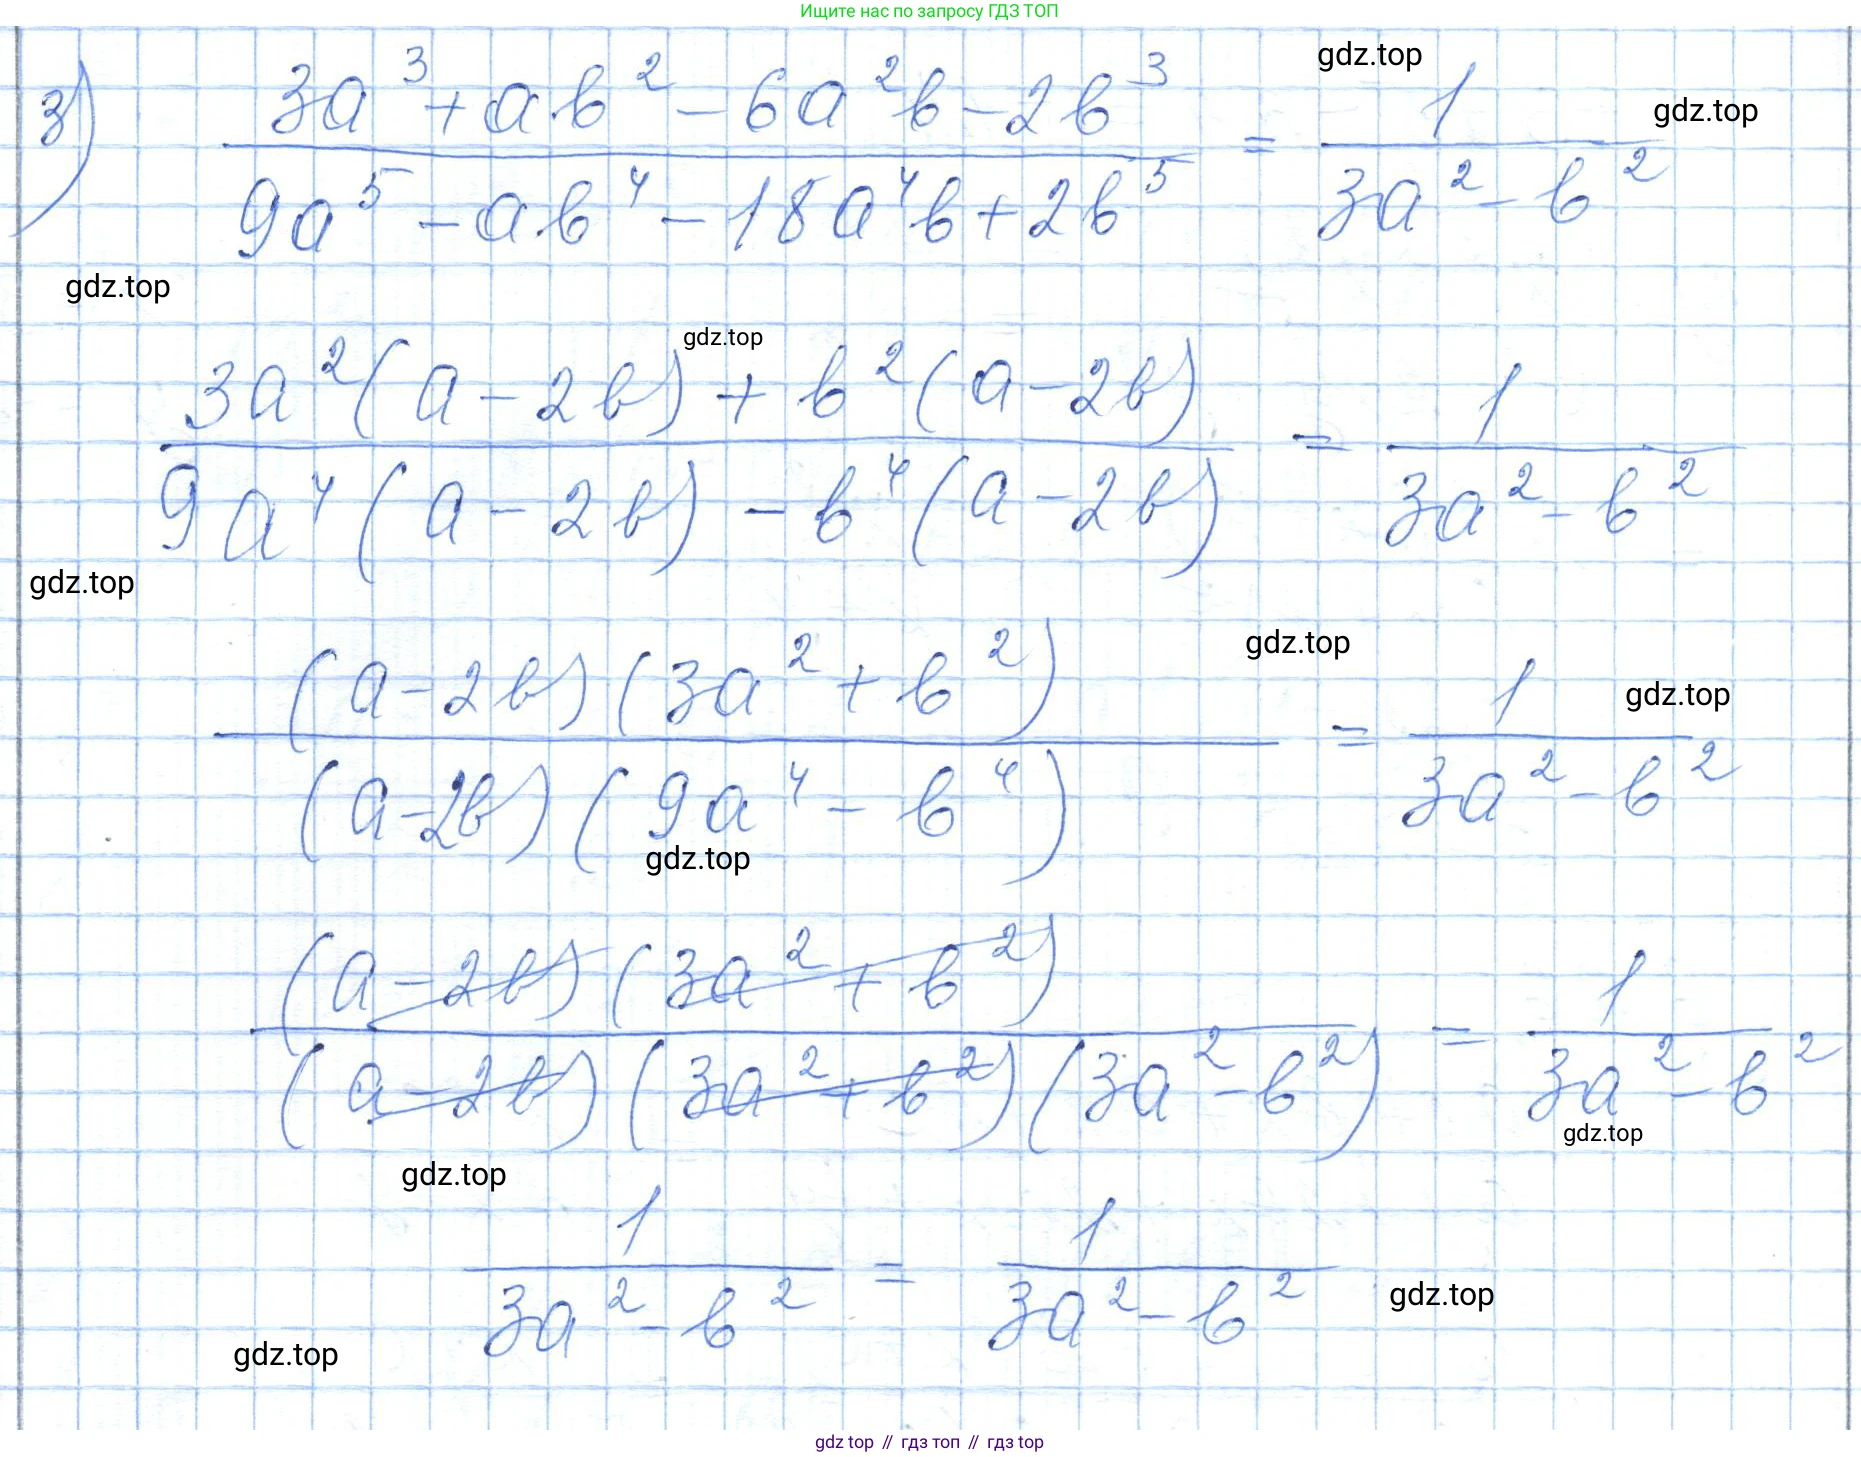 Ищите нас по запросу ГДЗ ТОП
gdz.top
з) (3a³ + ab² - 6a²b - 2b³)/(9a⁵ - ab⁴ - 18a⁴b + 2b⁵) = 1/(3a² - b²)
gdz.top
gdz.top
gdz.top
(3a²(a - 2b) + b²(a - 2b))/(9a⁴(a - 2b) - b⁴(a - 2b)) = 1/(3a² - b²)
gdz.top
gdz.top
gdz.top
((a - 2b)(3a² + b²))/((a - 2b)(9a⁴ - b⁴)) = 1/(3a² - b²)
gdz.top
((a - 2b)(3a² + b²))/((a - 2b)(3a² + b²)(3a² - b²)) = 1/(3a² - b²)
gdz.top
gdz.top
1/(3a² - b²) = 1/(3a² - b²)
gdz.top
gdz.top
gdz top // гдз топ // гдз top